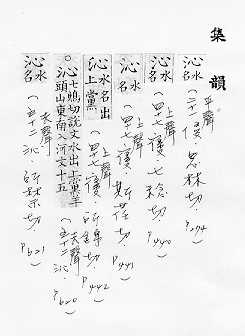 集韻
沁水名（平聲。二十一侵。思林切。P274）
沁水名（上聲 四十七寑。七稔切。P440）
沁水名（上聲 四十七寑。斯荏切。P441）
沁水名出上黨（上聲 四十七寑。所錦切。P442）
沁七鴆切說文水出上黨羊頭山東南入河文十五（去聲 五十二沁 P620）
沁水名（去聲 五十二沁。所禁切。P621）